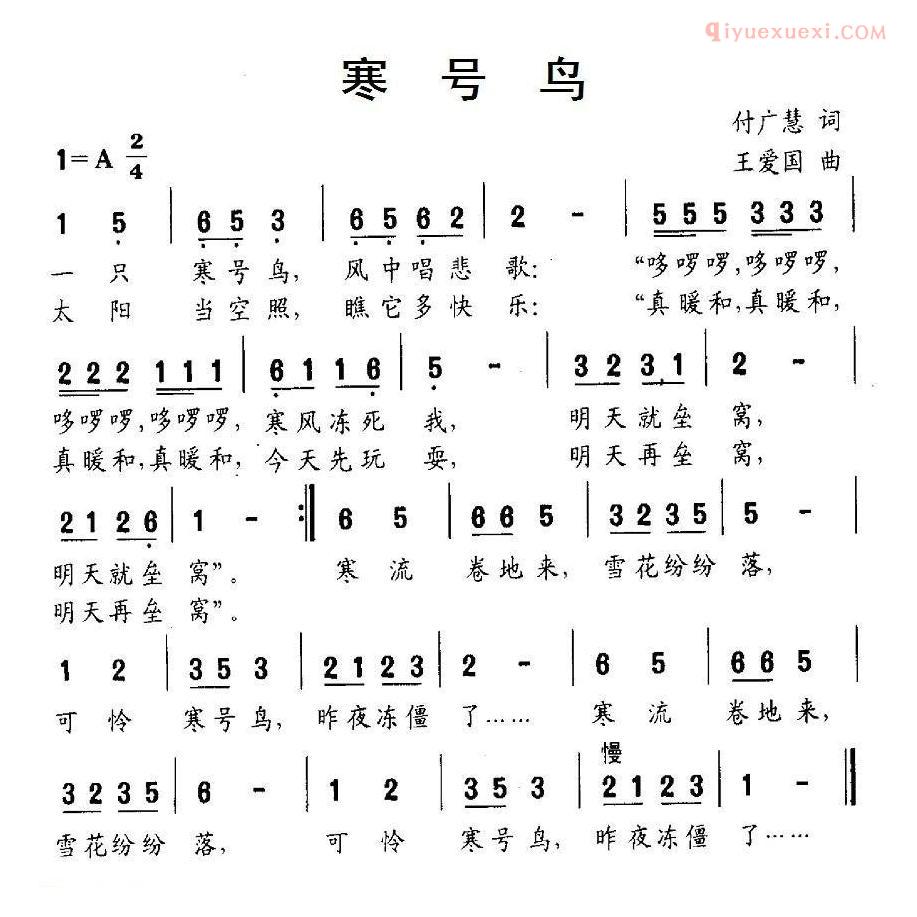 qiyuexuexi.com
寒号鸟
付广慧 词
1=A 2/4
王爱国 曲
1 5 | 6 5 3 | 6 5 6 2 | 2 - | 5 5 5 3 3 3 |
一 只 寒号鸟, 风中唱悲 歌: “哆啰啰,哆啰啰,
太 阳 当空照, 瞧它多快 乐: “真暖和,真暖和,
2 2 2 1 1 1 | 6 1 1 6 | 5 - | 3 2 3 1 | 2 - |
哆啰啰,哆啰啰, 寒风冻死 我, 明天就垒 窝,
真暖和,真暖和, 今天先玩 耍, 明天再垒 窝,
2 1 2 6 | 1 - :‖ 6 5 | 6 6 5 | 3 2 3 5 | 5 - |
明天就垒 窝”。 寒 流 卷地来, 雪花纷纷 落,
明天再垒 窝”。
1 2 | 3 5 3 | 2 1 2 3 | 2 - | 6 5 | 6 6 5 |
可 怜 寒号鸟, 昨夜冻僵 了…… 寒 流 卷地来,
慢
3 2 3 5 | 6 - | 1 2 | 3 5 3 | 2 1 2 3 | 2 - ‖
雪花纷纷 落, 可 怜 寒号鸟, 昨夜冻僵 了……